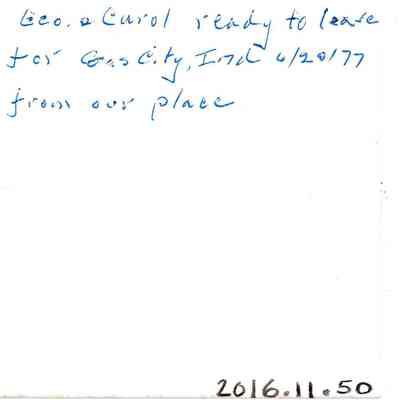 Geo. & Carol ready to leave
for Gas City, Ind 6/20/77
from our place
2016.11.50